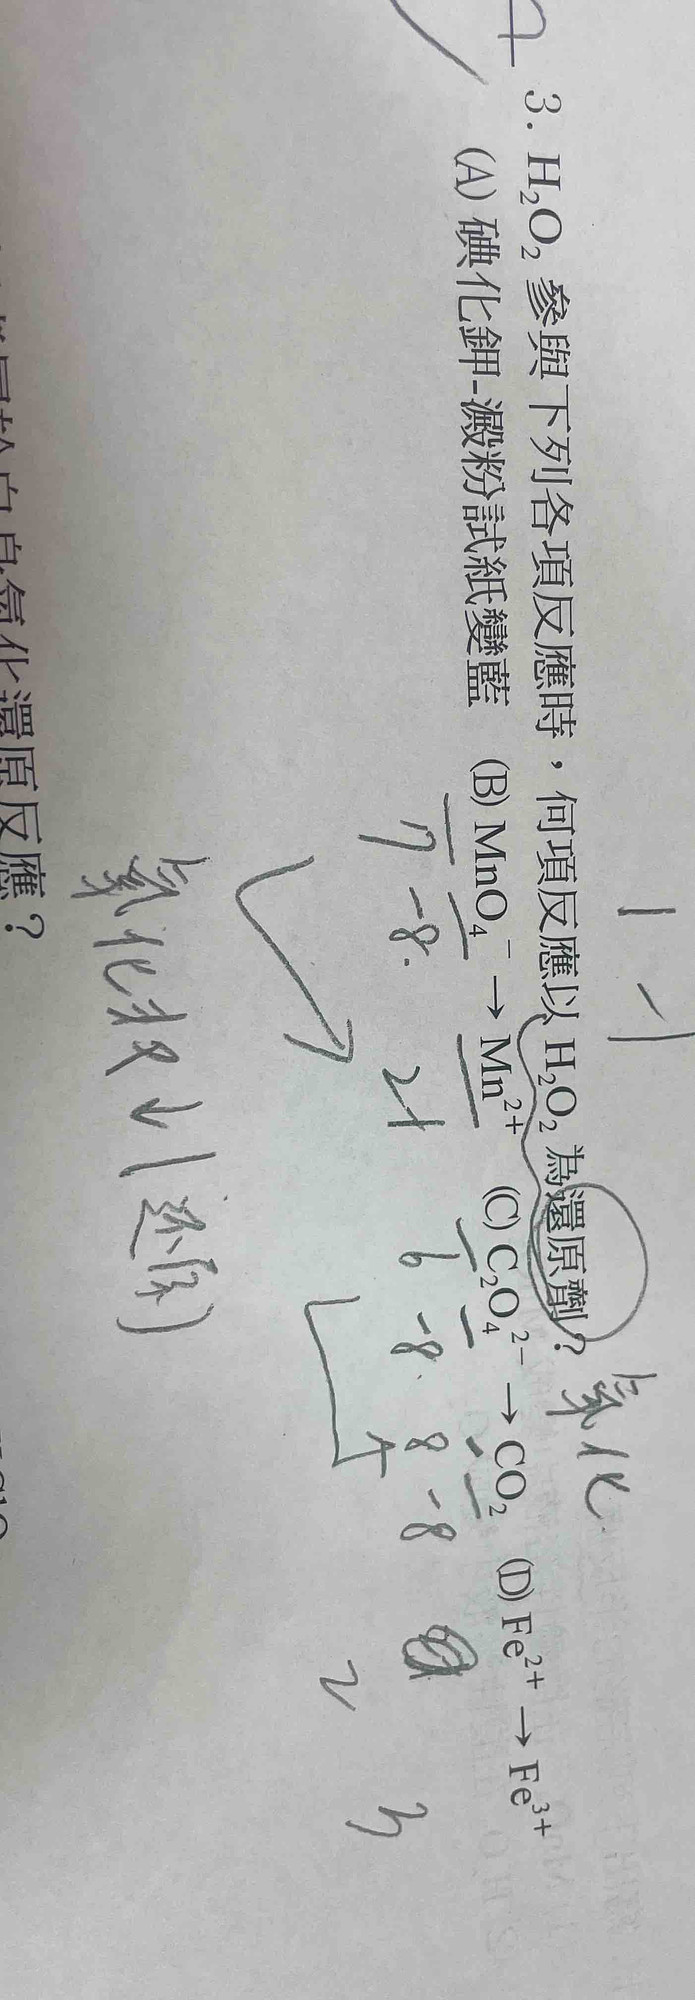 3. H₂O₂ 參與下列各項反應時，何項反應以 H₂O₂ 為還原劑？
氧化
(A) 碘化鉀-澱粉試紙變藍 (B) MnO₄⁻ → Mn²⁺ (C) C₂O₄²⁻ → CO₂ (D) Fe²⁺ → Fe³⁺
7 -8 2+ 6 -8 8 -8
2 3
氧化状↓(还原)
自身氧化還原反應？